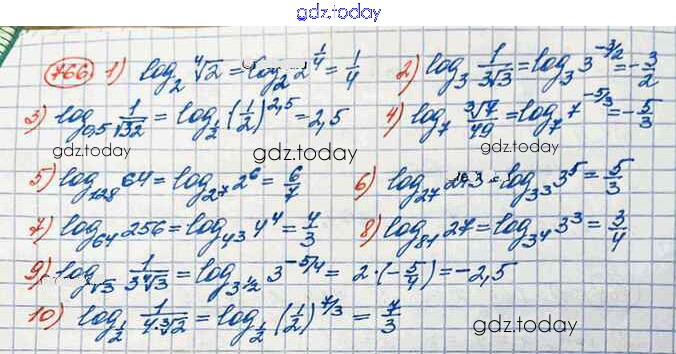 gdz.today
766 1) log₂ ⁴√2 = log₂ 2^(1/4) = 1/4 2) log₃ 1/(3√3) = log₃ 3^(-3/2) = -3/2
3) log_0,5 1/√32 = log_(1/2) (1/2)^2,5 = 2,5 4) log₇ ³√7/49 = log₇ 7^(-5/3) = -5/3
gdz.today gdz.today
5) log₁₂₈ 64 = log_2⁷ 2⁶ = 6/7 6) log₂₇ 243 = log_3³ 3⁵ = 5/3
7) log₆₄ 256 = log_4³ 4⁴ = 4/3 8) log₈₁ 27 = log_3⁴ 3³ = 3/4
9) log_√3 1/(3⁴√3) = log_3^(1/2) 3^(-5/4) = 2·(-5/4) = -2,5
gdz.today
10) log_(1/2) 1/(4·³√2) = log_(1/2) (1/2)^(7/3) = 7/3
gdz.today